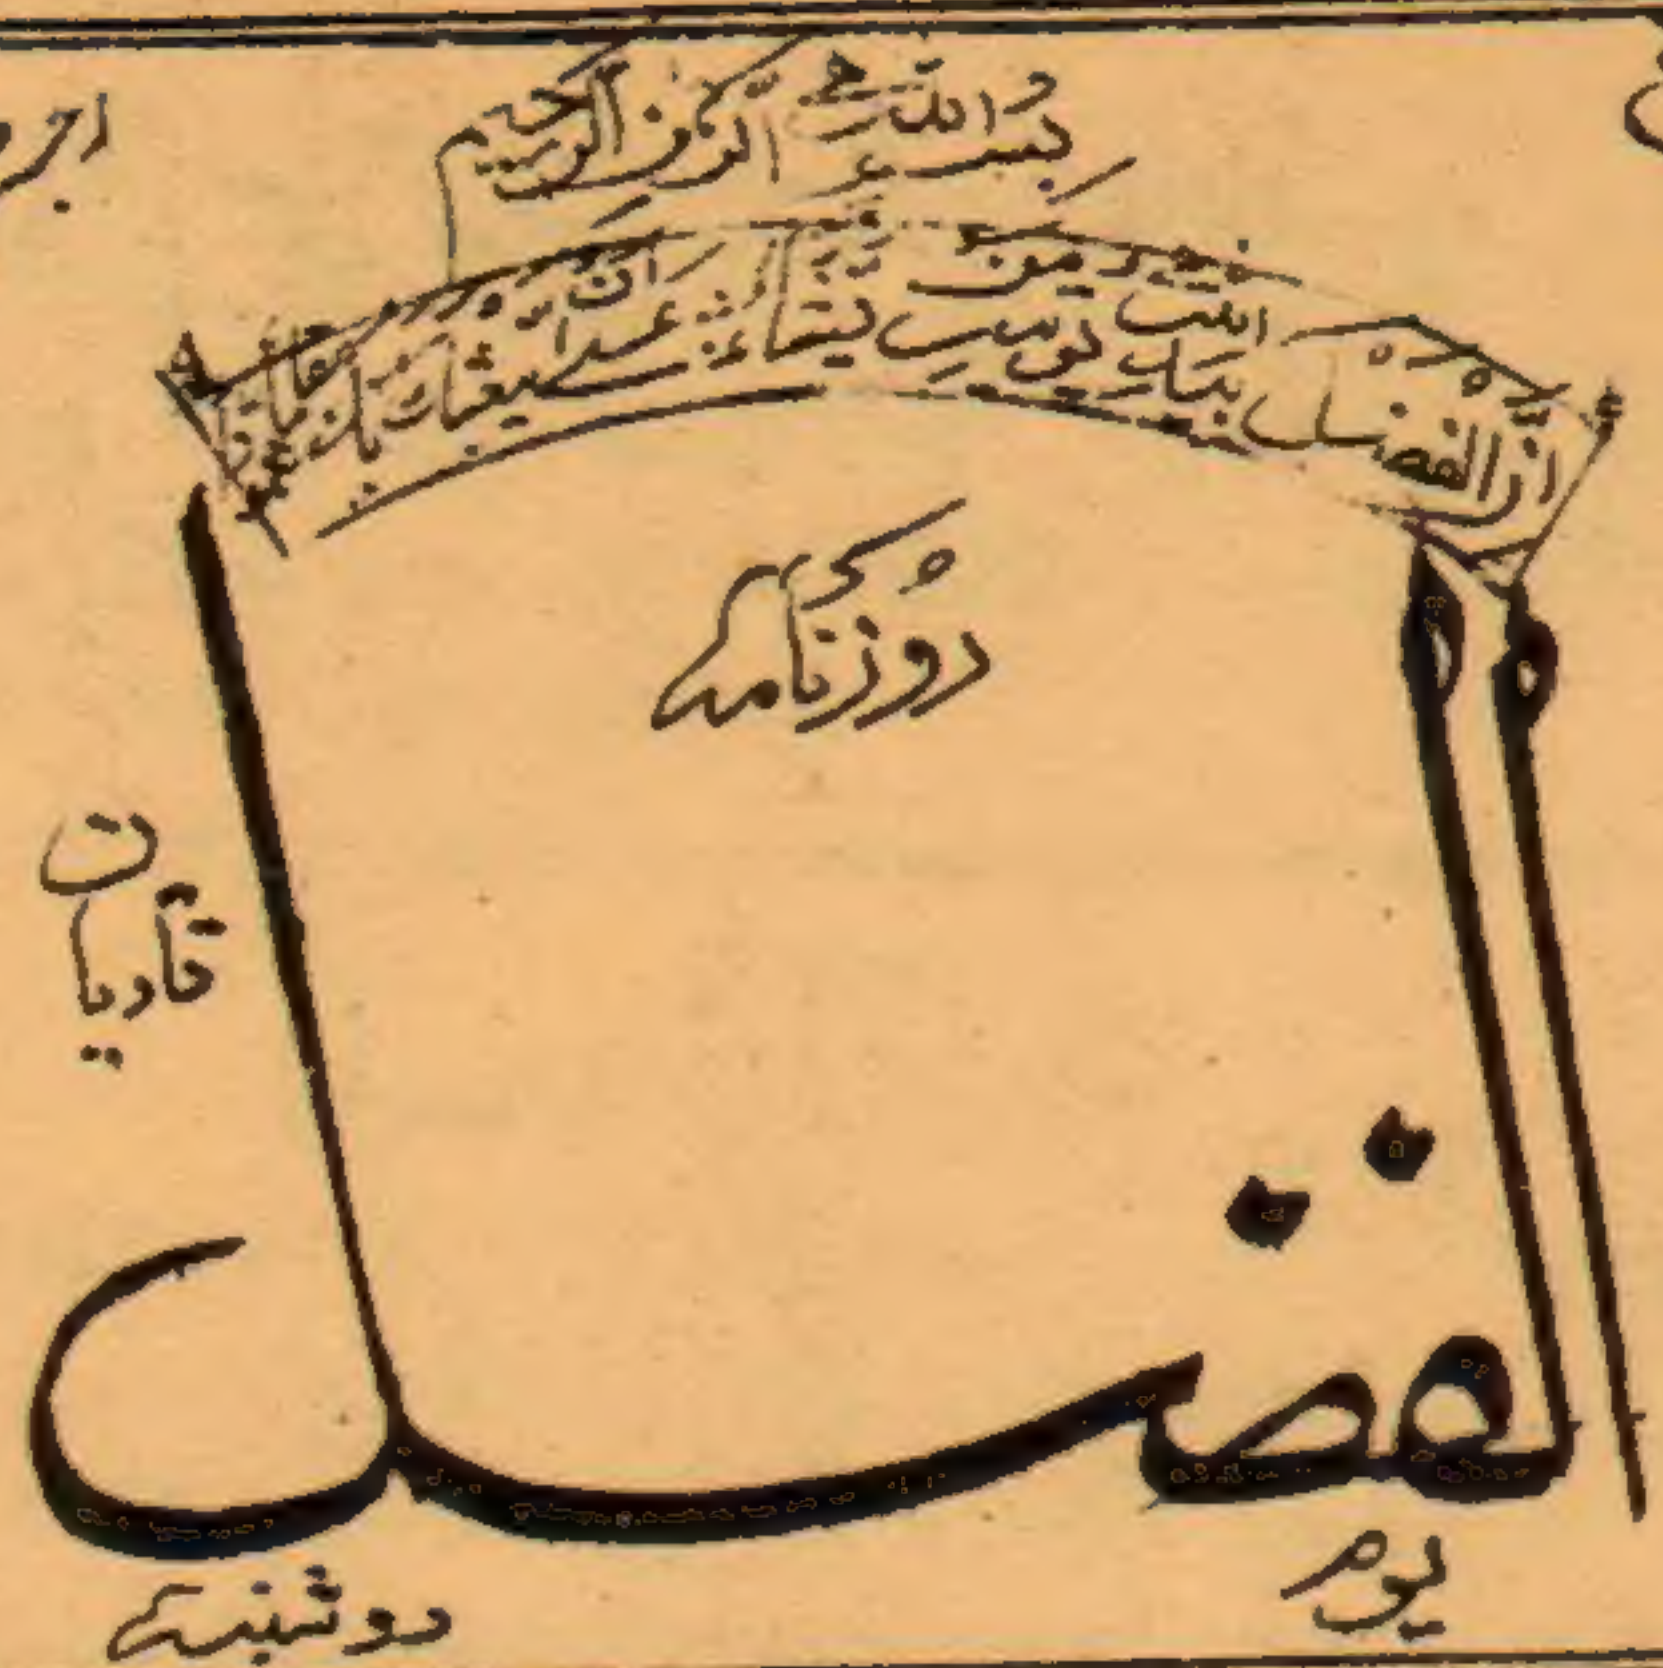 بسم اللہ الرحمن الرحیم
ان الفضل بید اللہ یؤتیہ من یشاء عسیٰ ان یبعثک ربک مقاما محمودا
روزنامہ
قادیان
الفضل
یوم دوشنبہ